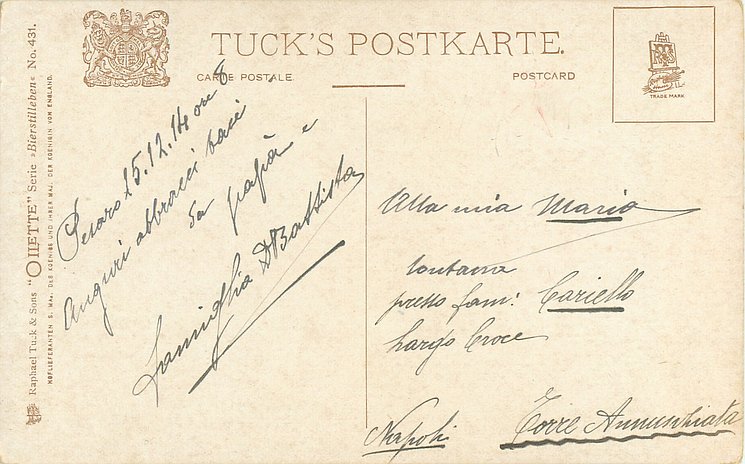 TUCK'S POSTKARTE.
CARTE POSTALE
POSTCARD
TRADE MARK
Raphael Tuck & Sons "OILETTE" Serie »Bierstilleben« No. 431.
HOFLIEFERANTEN S. MAJ. DES KOENIGS UND IHRER MAJ. DER KOENIGIN VON ENGLAND.
Pesaro 25.12.14 ore 8
Auguri abbracci baci
da papà e
famiglia D'Battista
Alla mia Maria
lontana
presso fam: Cariello
Largo Croce
Torre Annunziata
Napoli